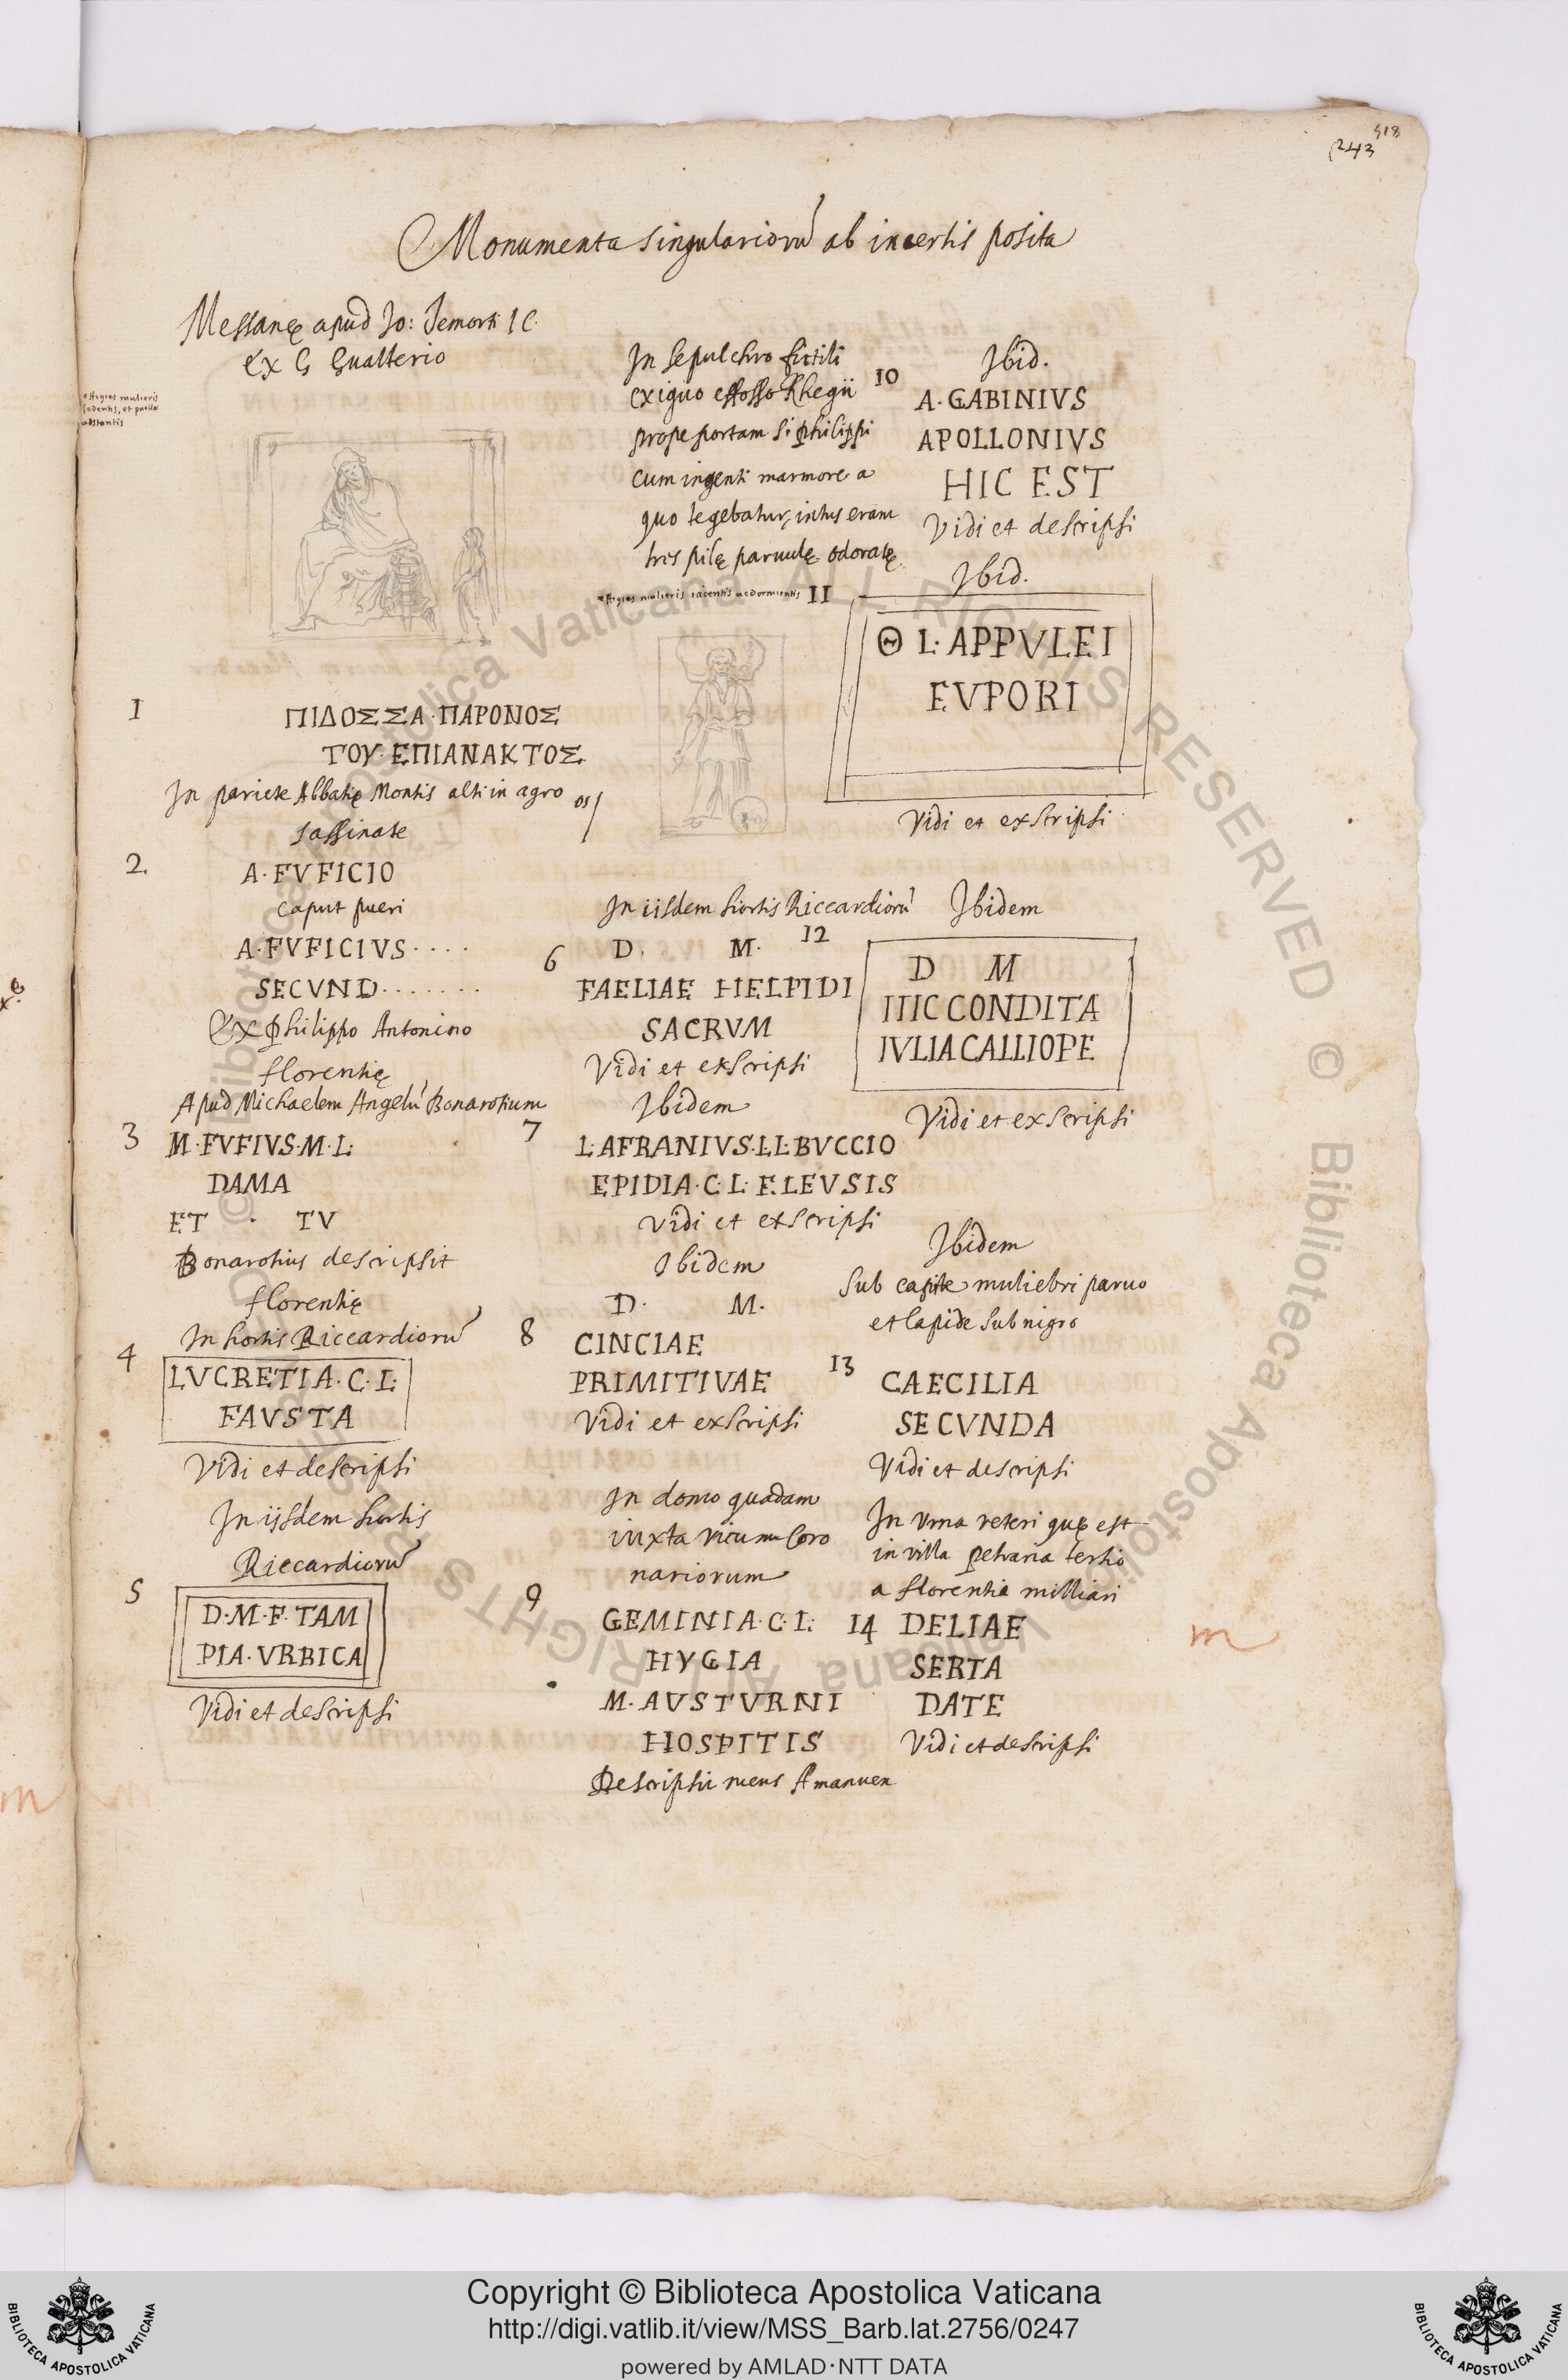 418
243
Monumenta singulariorũ ab incertis posita
Messanę apud Jo: Jemorti I C.
Ex G Gualterio
effigies mulieris
sedentis, et puellae
adstantis
1
ΠΙΔΟΣΣΑ·ΠΑΡΟΝΟΣ
ΤΟΥ·ΕΠΙΑΝΑΚΤΟΣ
In pariete Abbatię Montis alti in agro
sassinate
2.
A·FVFICIO
caput pueri
A·FVFICIVS····
SECVND·······
Ex Philippo Antonino
florentię
Apud Michaelem Angelũ Bonarotium
3
M·FVFIVS·M·L·
DAMA
ET · TV
Bonarotius descripsit
florentię
In hortis Riccardiorũ
4
LVCRETIA·C·L·
FAVSTA
Vidi et descripsi
In iisdem hortis
Riccardiorũ
5
D·M·F·TAM
PIA·VRBICA
Vidi et descripsi
In sepulchro fictili
exiguo effosso Rhegii
prope portam Si Philippi
cum ingenti marmore a
quo tegebatur, intus erant
tres pilę paruulę odoratę
effigies mulieris iacentis ac dormientis
In iisdem hortis Riccardiorũ
6
D. M.
FAELIAE HELPIDI
SACRVM
Vidi et exscripsi
Ibidem
7
L·AFRANIVS·L·L·BVCCIO
EPIDIA·C·L·ELEVSIS
Vidi et exscripsi
Ibidem
D. M.
8
CINCIAE
PRIMITIVAE
Vidi et exscripsi
In domo quadam
iuxta vicum Coro
nariorum
9
GEMINIA·C·L·
HYGIA
M·AVSTVRNI
HOSPITIS
Descripsit meus Amanuen
Ibid.
10
A·GABINIVS
APOLLONIVS
HIC EST
Vidi et descripsi
Ibid.
11
Θ L·APPVLEI
EVPORI
Vidi et exscripsi
Ibidem
12
D M
IIIC CONDITA
IVLIA CALLIOPE
Vidi et exscripsi
Ibidem
sub capite muliebri paruo
et lapide subnigro
13
CAECILIA
SECVNDA
Vidi et descripsi
In Vrna veteri quę est
in villa Petraria tertio
a florentia milliari
14
DELIAE
SERTA
DATE
Vidi et descripsi
m
m
© Biblioteca Apostolica Vaticana ALL RIGHTS RESERVED © Biblioteca Apostolica Vaticana ALL RIGHTS RESERVED
BIBLIOTECA APOSTOLICA VATICANA
Copyright © Biblioteca Apostolica Vaticana
http://digi.vatlib.it/view/MSS_Barb.lat.2756/0247
powered by AMLAD·NTT DATA
BIBLIOTECA APOSTOLICA VATICANA